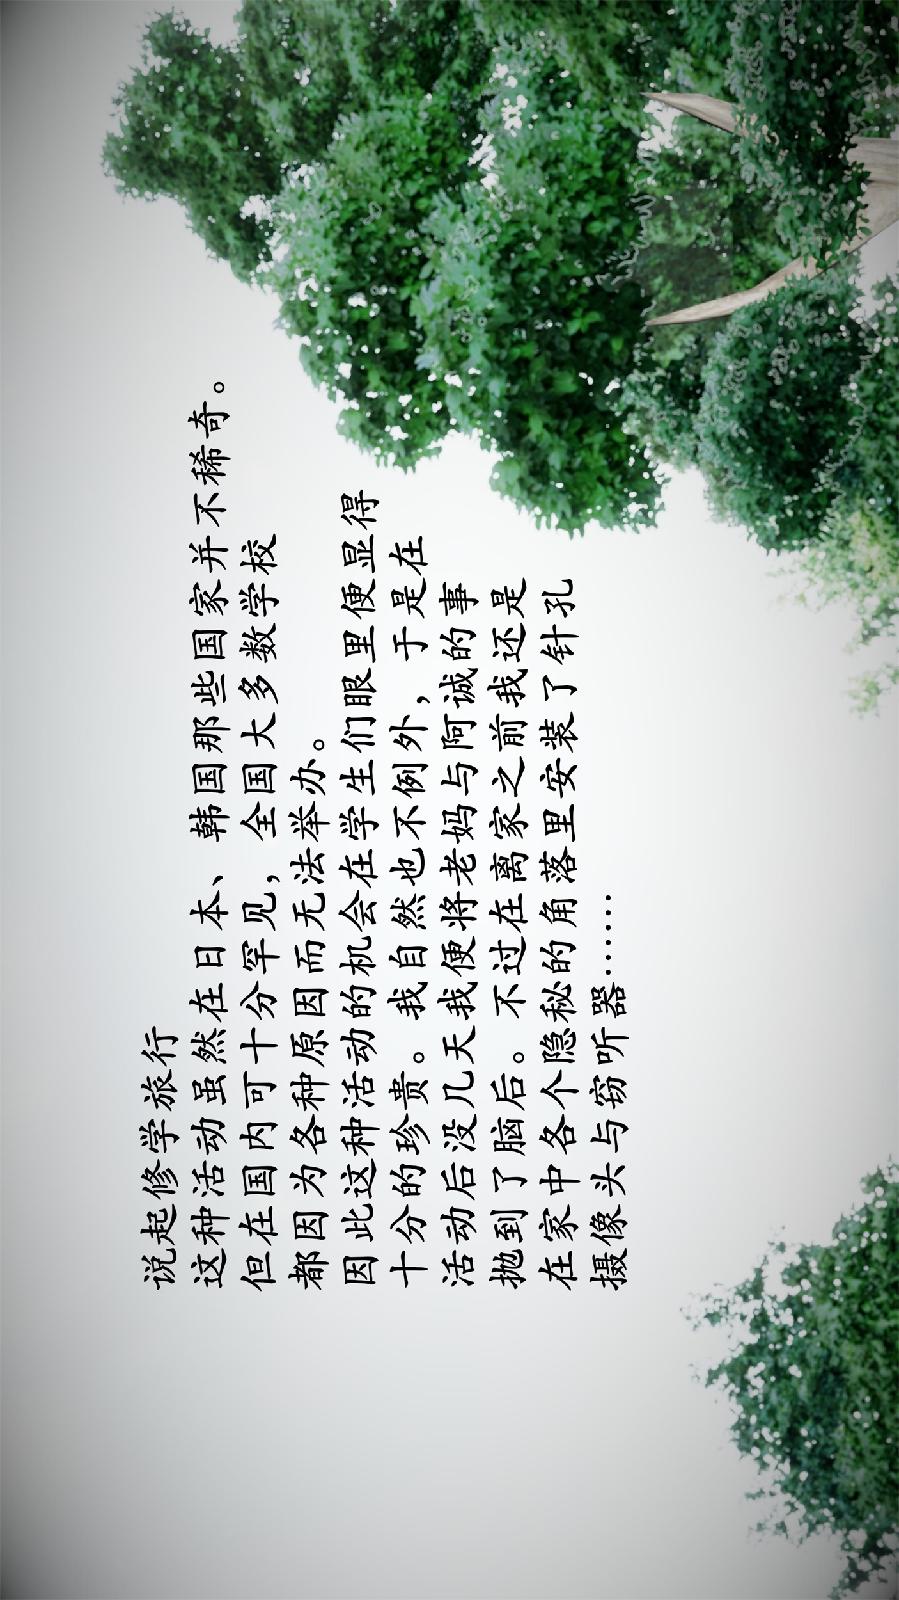 说起修学旅行
这种活动虽然在日本、韩国那些国家并不稀奇。
但在国内可十分罕见，全国大多数学校
都因为各种原因而无法举办。
因此这种活动的机会在学生们眼里便显得
十分的珍贵。我自然也不例外，于是在
活动后没几天我便将老妈与阿诚的事
抛到了脑后。不过在离家之前我还是
在家中各个隐秘的角落里安装了针孔
摄像头与窃听器……